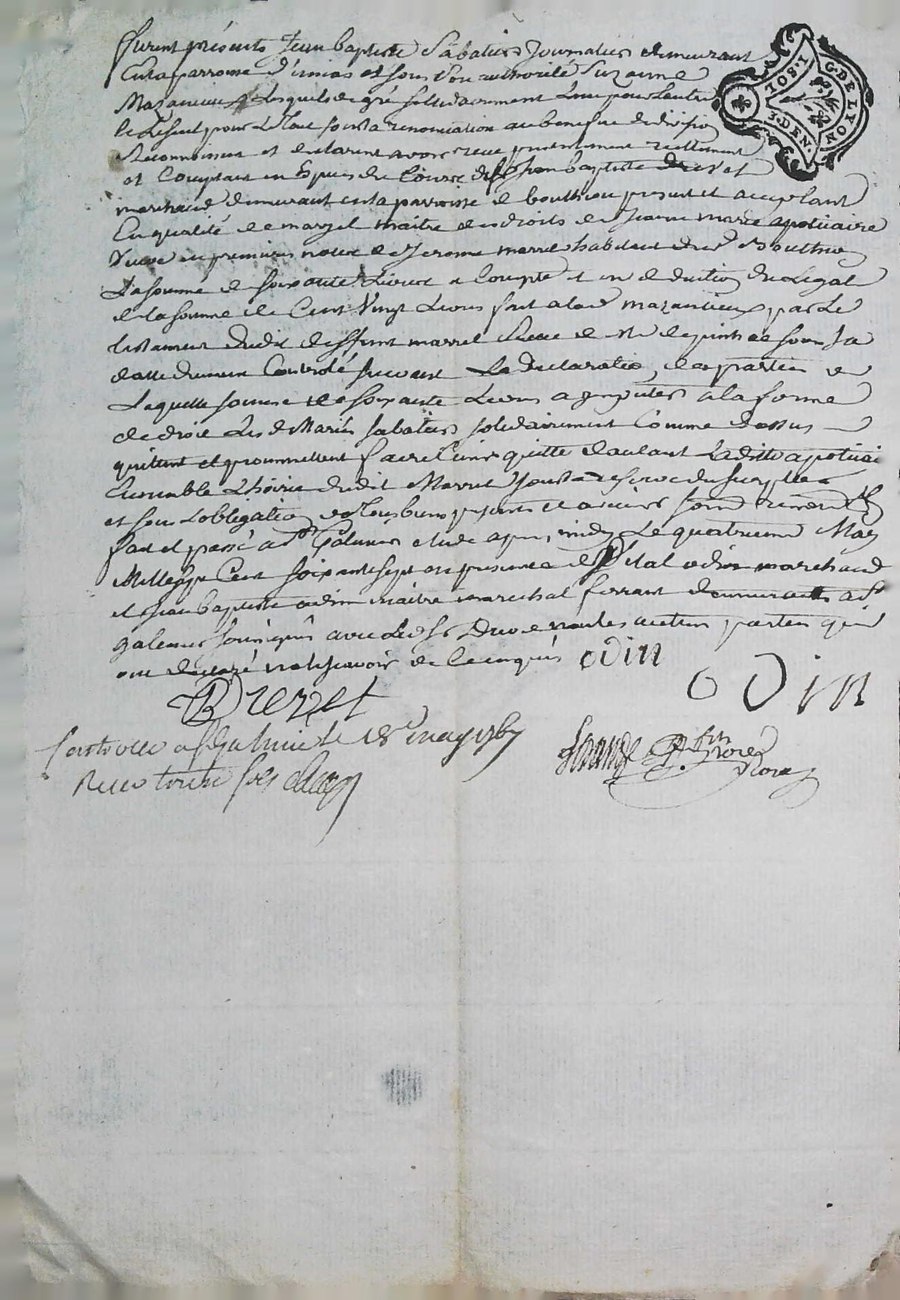 furent présents Jean baptiste Sabatier Journalier demeurant
En la parroisse d' et sous son authorité Suzanne
Mazancieux Lesquels de gré solidairement l'un pour l'autre
le seul pour le tout sous la renonciation au benefice de division
Reconnoissent et declarent avoir receu presentement reellement
et Comptant en Espèces de Cours de Sr Jean baptiste Drevet
marchand demeurant en la parroisse de bouthéon present et acceptant
En qualité de mary et maitre des droits de Jeanne marie apotiçaire
Veuve en premieres noces de Jerome marret habitant dud Bouthéon
La somme de soixante Livres a Compte et en deduction du Legat
de la somme de Cent Vingt Livres fait a lad mazancieux par Le
testament dudit deffunt marret receu de Me sous sa
datte dument Controlé suivant La declaration des parties de
Laquelle somme de soixante Livres a imputer a la forme
de droit Les d Mariés sabatier solidairement Comme dessus
quittent et promettent faire tenir quitte d'autant Laditte apotiçai
Ensemble L'hoirie dudit Marret
et sous l'obligation de tous biens presents et avenir
fait et passé a St Galmier etude apres midy Le quatrieme May
Mille sept Cent soixante sept en presence de Sr Vital odin marchand
et Jean baptiste odin maitre marechal ferrant demeurants a St
galmier soussignés avec Led Sr Drevet non les autres parties qui
ont declaré ne le sçavoir de ce enquis odin
odin
Drevet
Controllé a St Galmier le 18e may 1767
Receu treize sols
G. DE LYON
10S. 1. SOL
3. DEN.